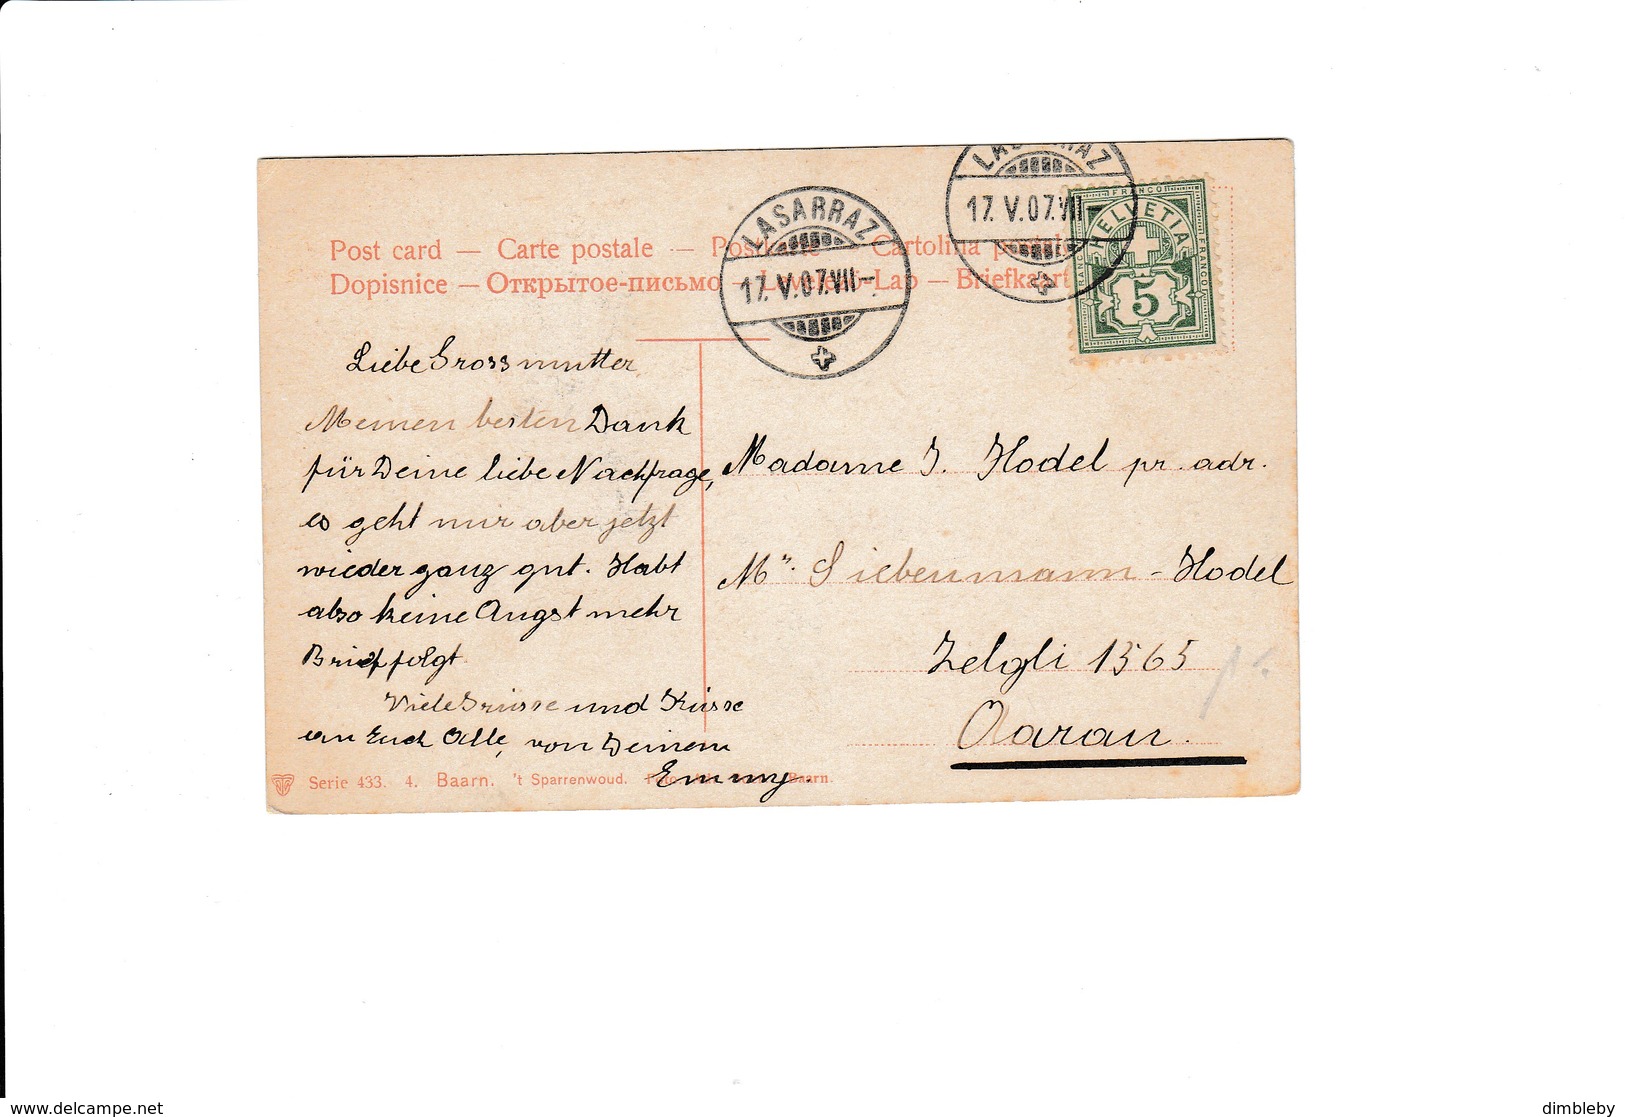 LASARRAZ
17. V. 07. VII –
LASARRAZ
17. V. 07. VII –
FRANCO
FRANCO
HELVETIA
5
Post card — Carte postale — Postkarte — Cartolina postale
Dopisnice — Открытое-письмо — Levelező-Lap — Briefkaart
Liebe Grossmutter
Meinen besten Dank
für Deine liebe Nachfrage,
es geht mir aber jetzt
wieder ganz gut. Habt
also keine Angst mehr
Brief folgt
Viele Grüsse und Küsse
an Euch Alle, von Deinem
Emmy.
Madame J. Hodel pr. adr.
Mr. Siebenmann-Hodel
Zelgli 1565
Aarau.
Serie 433. 4. Baarn. 't Sparrenwoud. Foto Baarn.
www.delcampe.net
dimbleby